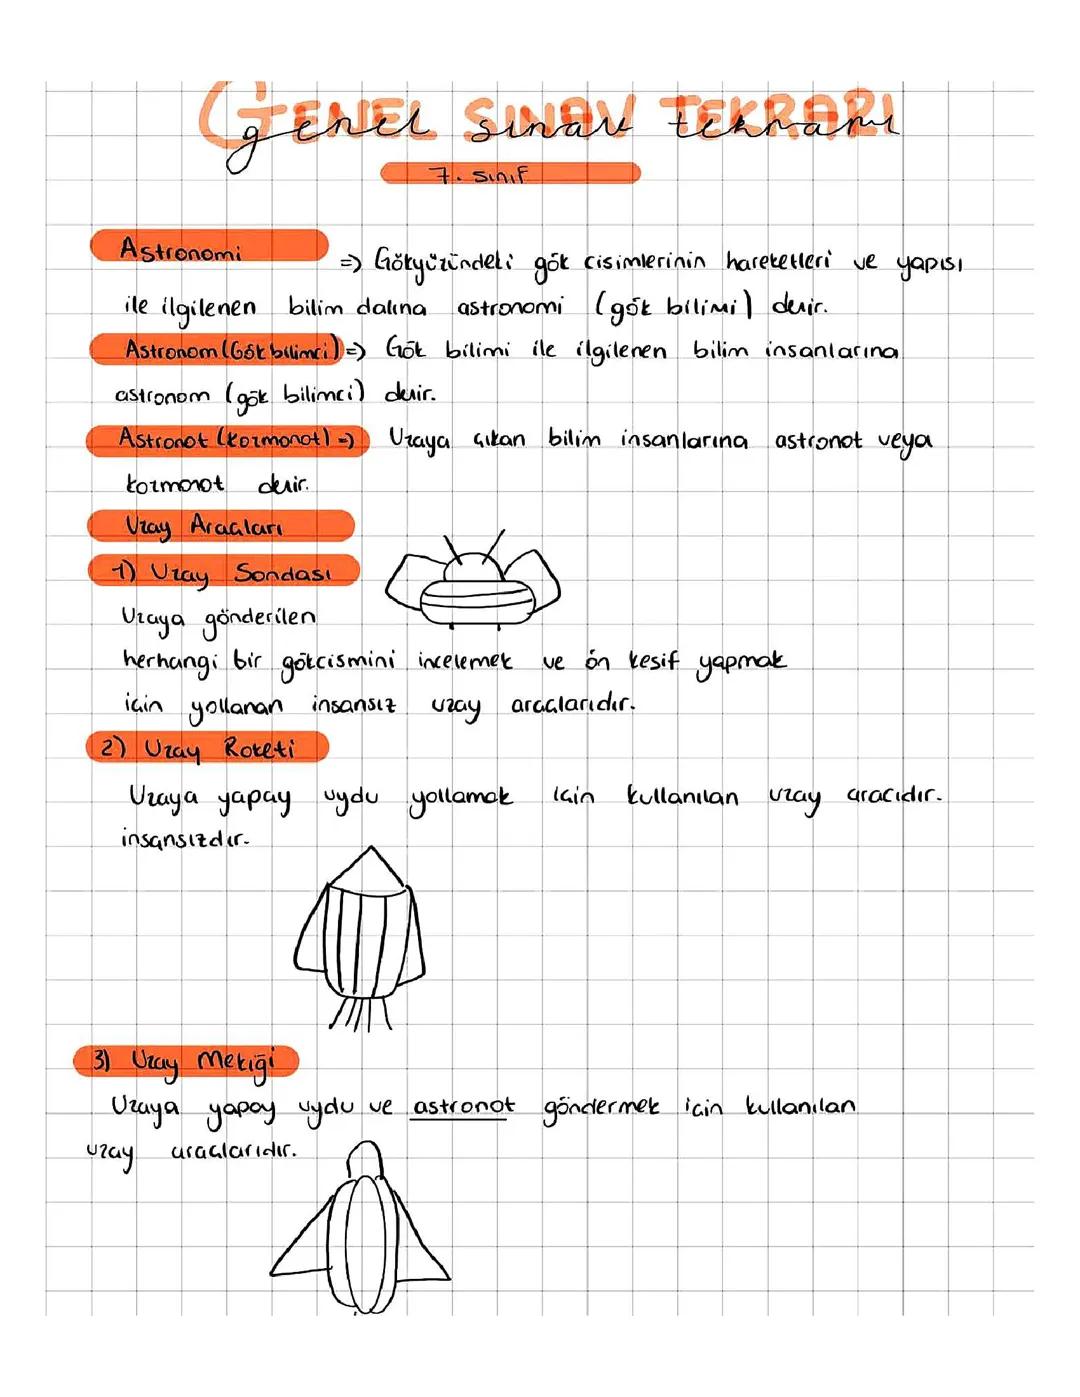 GENEL SINAV TEKRARI
genel sınav tekrarı
7. sınıf
Astronomi => Gökyüzündeki gök cisimlerinin hareketleri ve yapısı
ile ilgilenen bilim dalına astronomi (gök bilimi) denir.
Astronom (Gök bilimci) => Gök bilimi ile ilgilenen bilim insanlarına
astronom (gök bilimci) denir.
Astronot (kozmonot) => Uzaya çıkan bilim insanlarına astronot veya
kozmonot denir.
Uzay Araçları
1) Uzay Sondası
Uzaya gönderilen
herhangi bir gökcismini incelemek ve ön kesif yapmak
için yollanan insansız uzay araçlarıdır.
2) Uzay Roketi
Uzaya yapay uydu yollamak için kullanılan uzay aracıdır.
insansızdır.
3) Uzay Mekiği
Uzaya yapay uydu ve astronot göndermek için kullanılan
uzay araçlarıdır.